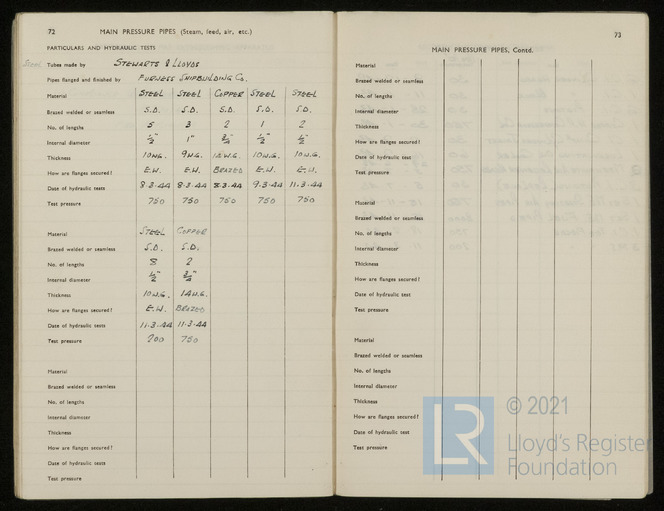 72 MAIN PRESSURE PIPES (Steam, feed, air, etc.)
PARTICULARS AND HYDRAULIC TESTS
Steel Tubes made by STEWARTS & LLOYDS
Pipes flanged and finished by FURNESS SHIPBUILDING CO.
Material STEEL STEEL COPPER STEEL STEEL
Brazed welded or seamless S.D. S.D. S.D. S.D. S.D.
No. of lengths 5 3 2 1 2
Internal diameter ½" 1" ¾" ½" ½"
Thickness 10W.G. 9W.G. W.G. 10W.G. 10W.G.
How are flanges secured? E.W. E.W. BRAZED E.W. E.W.
Date of hydraulic tests 8·3·44 8·3·44 8·3·44 9·3·44 11·3·44
Test pressure 750 750 750 750 750
Material STEEL COPPER
Brazed welded or seamless S.D. S.D.
No. of lengths 8 2
Internal diameter ½" ¾"
Thickness 10W.G. 14W.G.
How are flanges secured? E.W. BRAZED
Date of hydraulic tests 11·3·44 11·3·44
Test pressure 700 750
Material
Brazed welded or seamless
No. of lengths
Internal diameter
Thickness
How are flanges secured?
Date of hydraulic tests
Test pressure
73
MAIN PRESSURE PIPES, Contd.
Material
Brazed welded or seamless
No. of lengths
Internal diameter
Thickness
How are flanges secured?
Date of hydraulic tests
Test pressure
Material
Brazed welded or seamless
No. of lengths
Internal diameter
Thickness
How are flanges secured?
Date of hydraulic tests
Test pressure
Material
Brazed welded or seamless
No. of lengths
Internal diameter
Thickness
How are flanges secured?
Date of hydraulic tests
Test pressure
LR © 2021
Lloyd's Register
Foundation